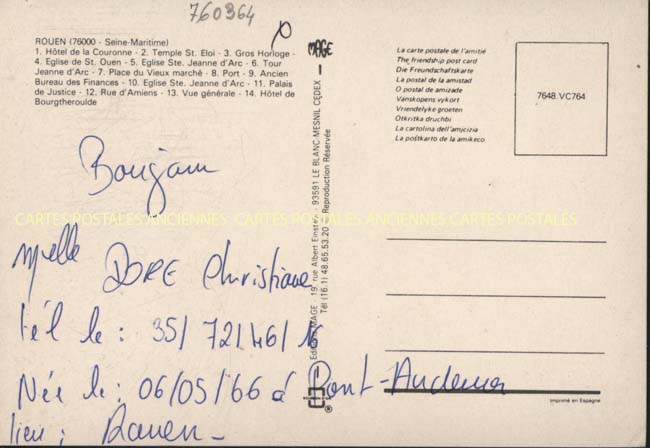 760364
ROUEN (76000 - Seine-Maritime)
1. Hôtel de la Couronne - 2. Temple St. Eloi - 3. Gros Horloge -
4. Eglise de St. Ouen - 5. Eglise Ste. Jeanne d'Arc - 6. Tour
Jeanne d'Arc - 7. Place du Vieux marché - 8. Port - 9. Ancien
Bureau des Finances - 10. Eglise Ste. Jeanne d'Arc - 11. Palais
de Justice - 12. Rue d'Amiens - 13. Vue générale - 14. Hôtel de
Bourgtheroulde
MAGE
Editions MAGE - 19, rue Albert Einstein - 93591 LE BLANC-MESNIL CEDEX
Tél (16.1) 48.65.53.20 - Reproduction Réservée
La carte postale de l'amitié
The friendship post card
Die Freundschaftskarte
La postal de la amistad
O postal de amizade
Vänskapens vykort
Vriendelyke groeten
Otkritka druchbi
La cartolina dell'amicizia
La poŝtkarto de la amikeco
7648.VC764
Bonjour
CARTES POSTALES ANCIENNES CARTES POSTALES ANCIENNES CARTES POSTALES
Melle DORE Christiane
tél le : 35/72/46/16
Née le : 06/05/66 à Pont-Audemer
lieu : Rouen -
Imprimé en Espagne
®